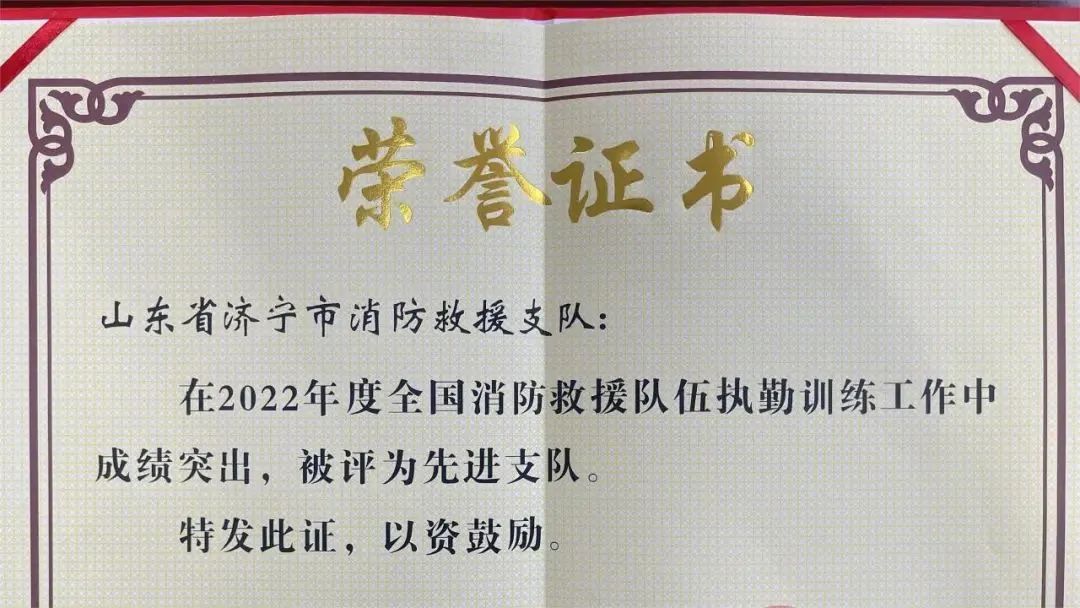 荣誉证书
山东省济宁市消防救援支队：
在2022年度全国消防救援队伍执勤训练工作中
成绩突出，被评为先进支队。
特发此证，以资鼓励。